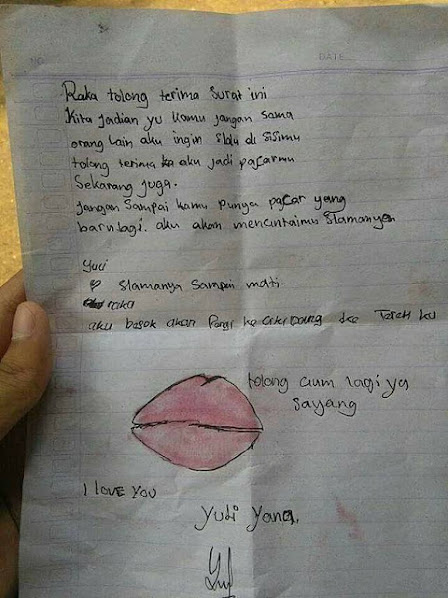 NO.
DATE
Raka tolong terima surat ini
Kita jadian yu kamu jangan sama
orang lain aku ingin slalu di sisimu
tolong terima aku jadi pacarmu
Sekarang juga.
jangan sampai kamu punya pacar yang
baru lagi. aku akan mencintaimu slamanya
yudi
♡ slamanya sampai mati
raka
aku besok akan Pergi ke ke
tolong cium lagi ya
sayang
I LOVE YOU
yudi yana.